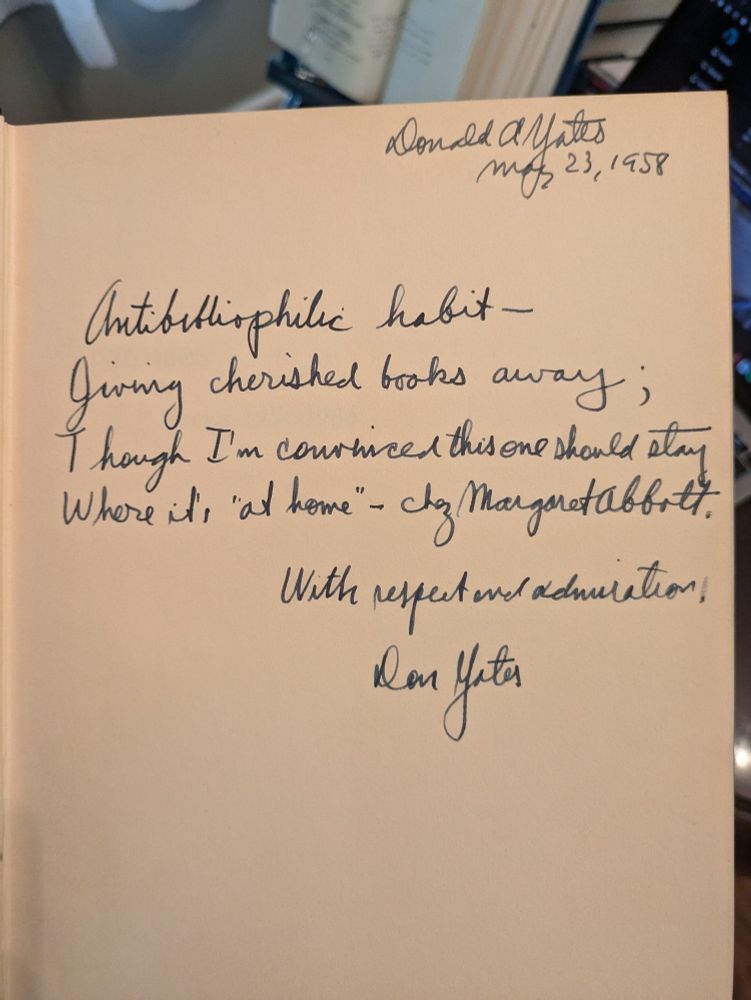 Donald A Yates
May 23, 1958
Antibibliophilic habit—
Giving cherished books away;
Though I'm convinced this one should stay
Where it's "at home" - chez Margaret Abbott.
With respect and admiration,
Don Yates